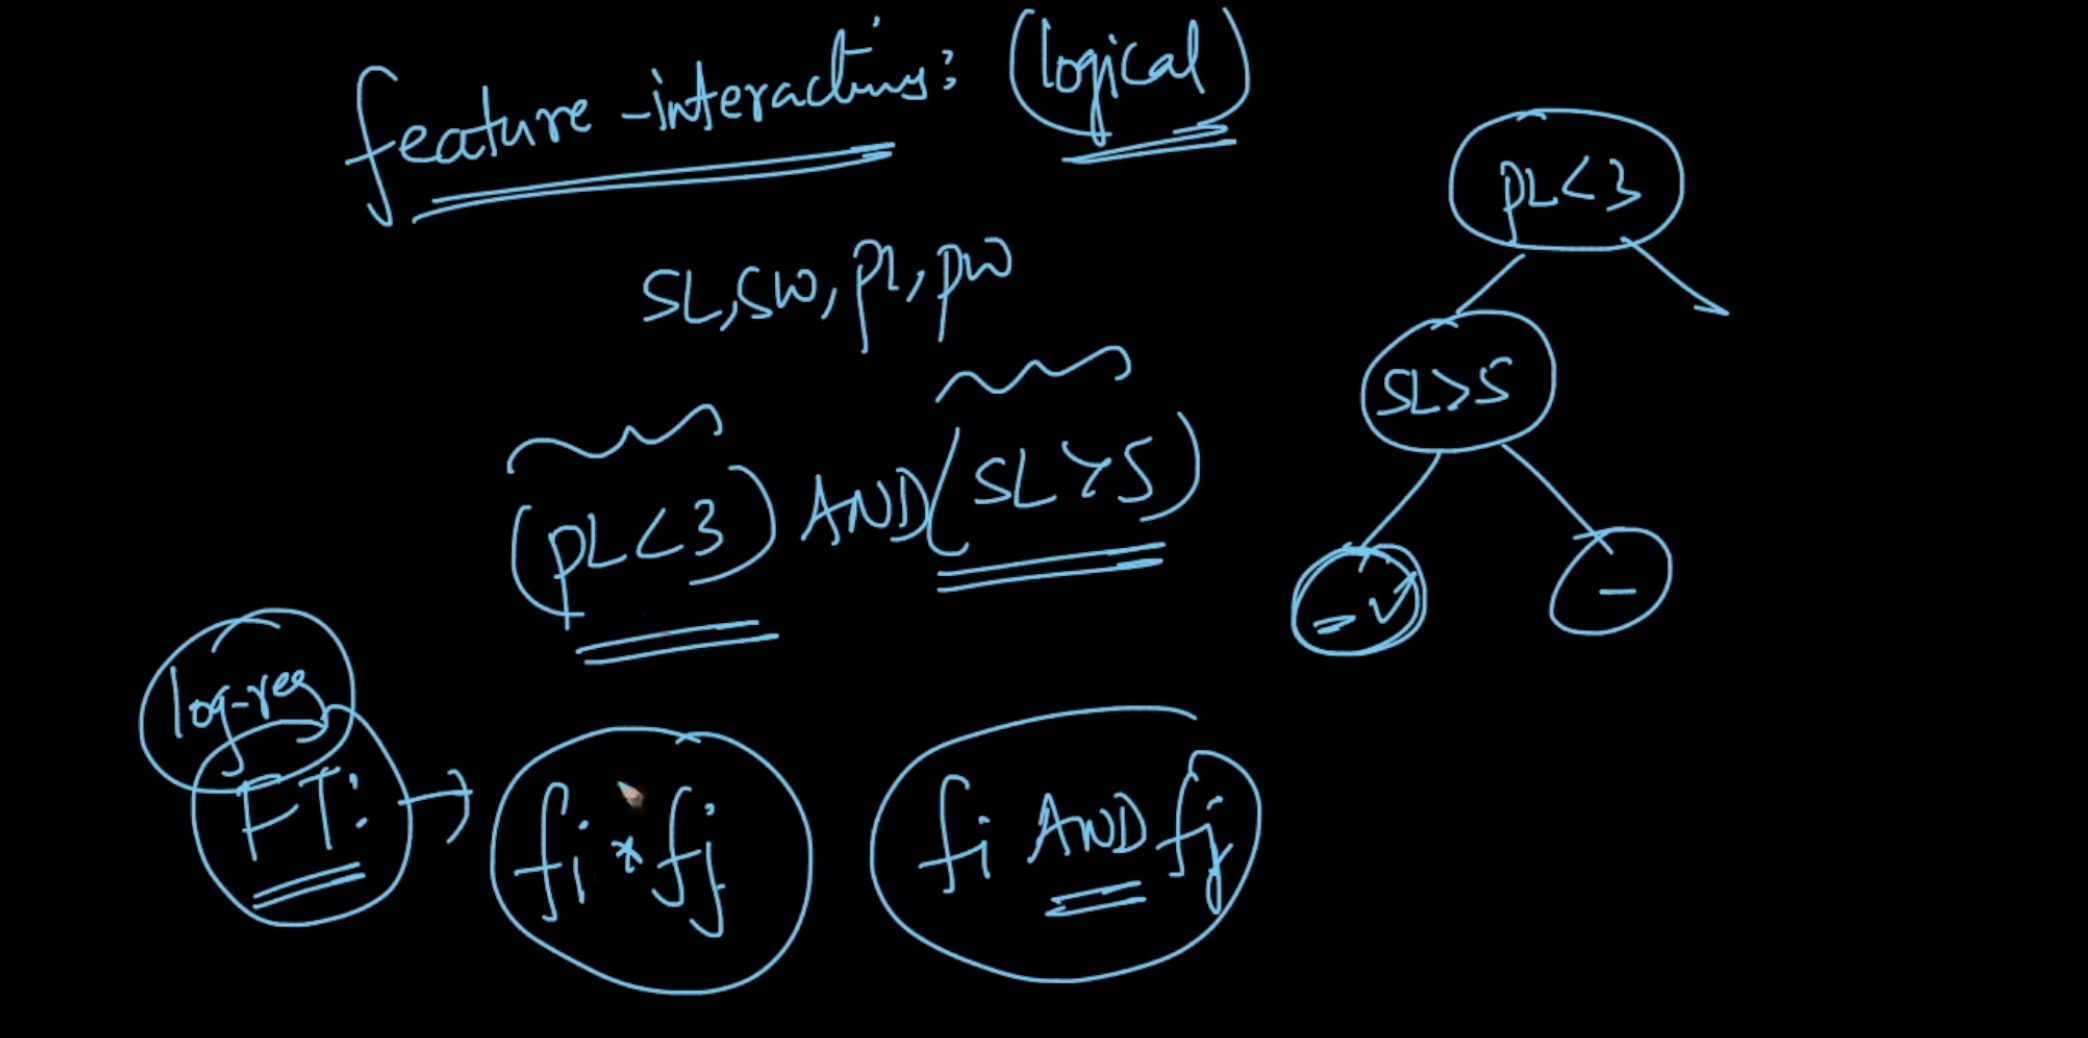 feature-interactions: (logical)
PL<3
SL, SW, PL, PW
SL>5
(PL<3) AND (SL>5)
log-reg
FT:
fi * fj
fi AND fj